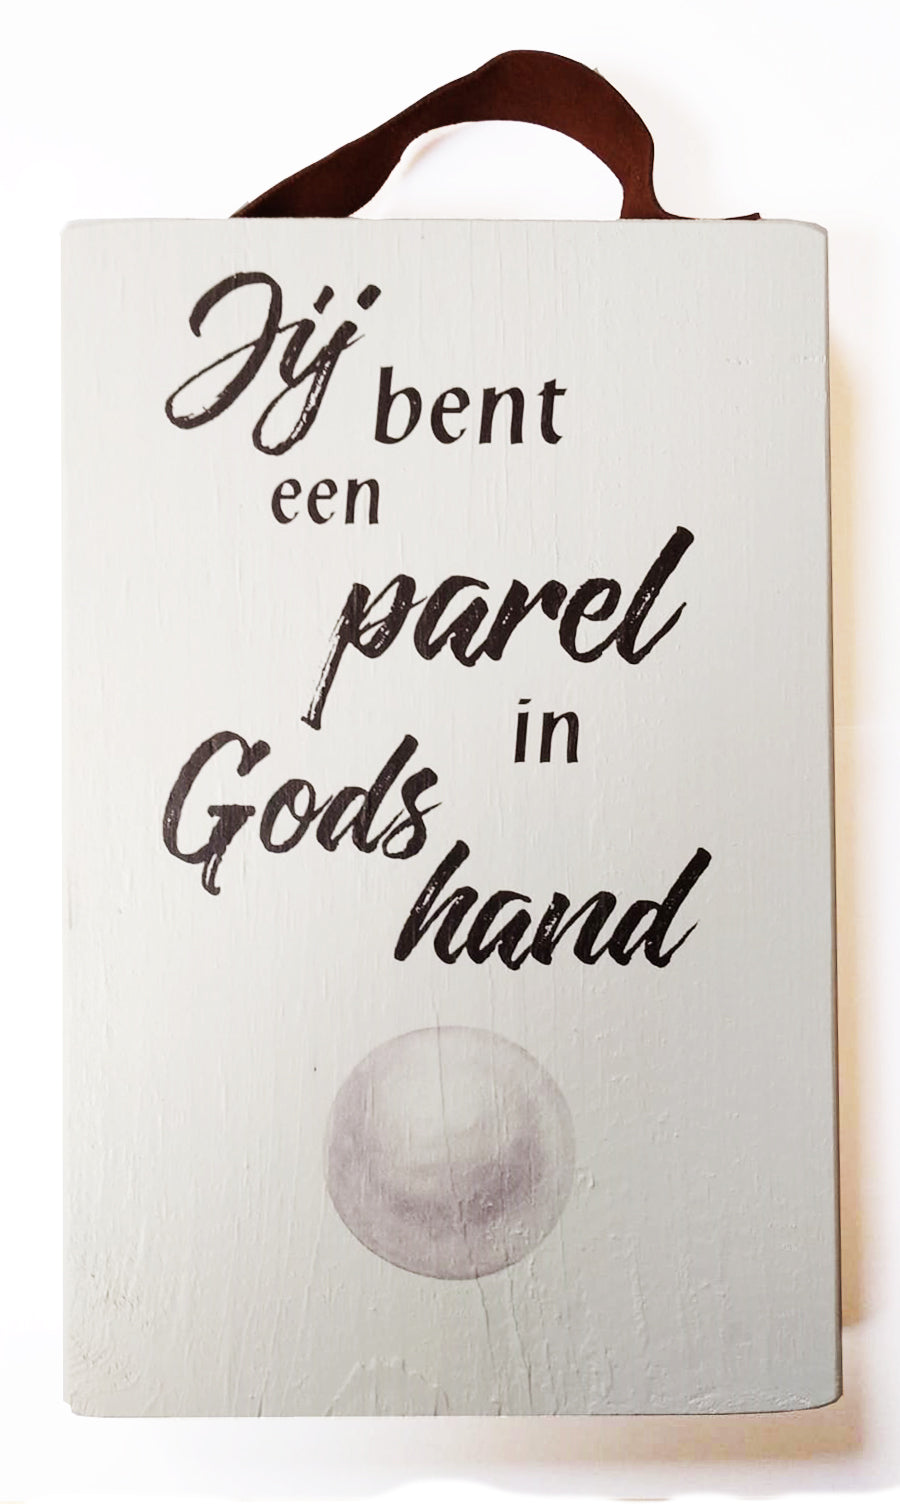 Jij bent
een
parel
in
Gods
hand